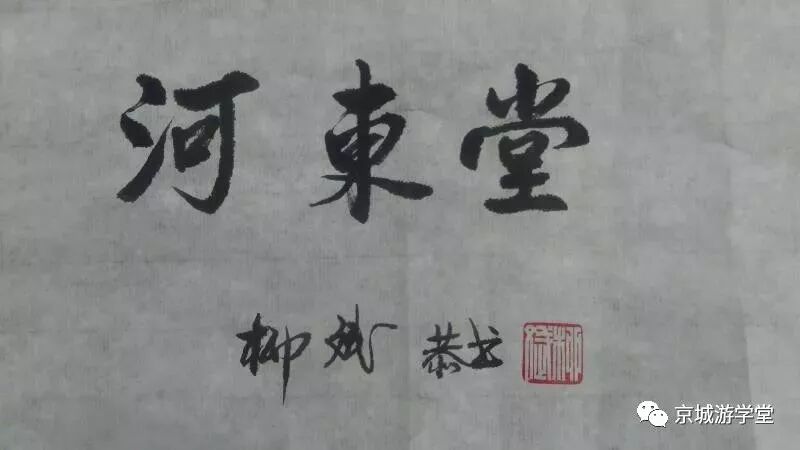 河東堂
柳斌 恭书
京城游学堂